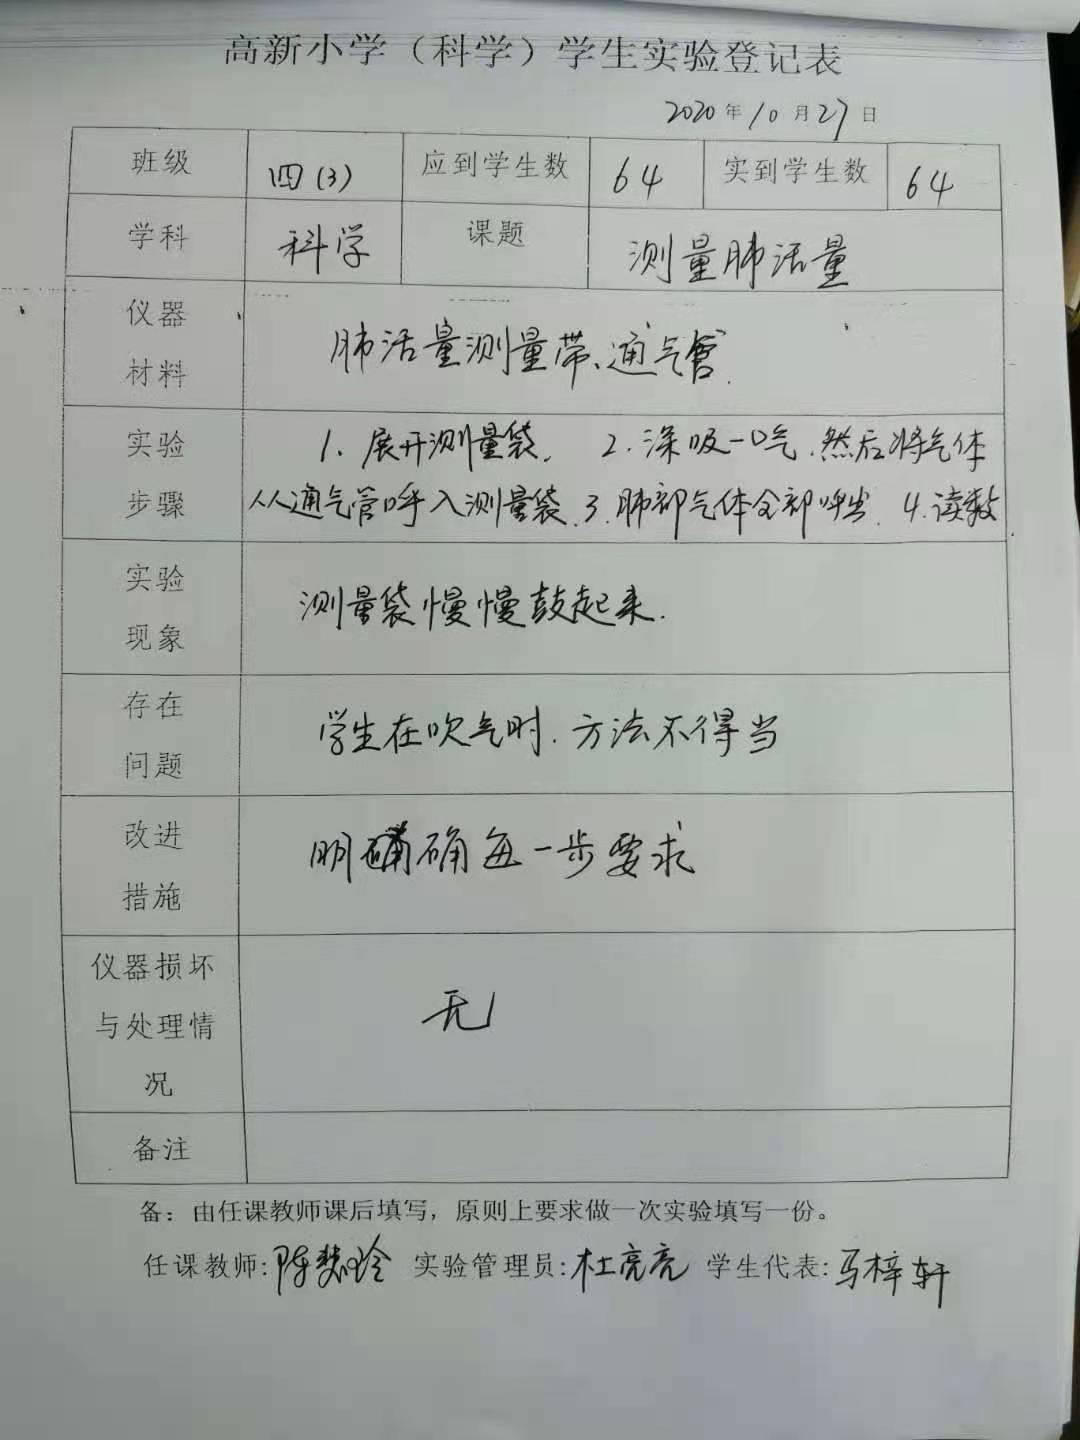 高新小学（科学）学生实验登记表
2020年10月27日
班级 四(3) 应到学生数 64 实到学生数 64
学科 科学 课题 测量肺活量
仪器
材料
肺活量测量带、通气管.
实验
步骤
1、展开测量袋. 2.深吸一口气.然后将气体
从通气管呼入测量袋.3.肺部气体全部呼出. 4.读数
实验
现象
测量袋慢慢鼓起来.
存在
问题
学生在吹气时.方法不得当
改进
措施
明确每一步要求
仪器损坏
与处理情
况
无
备注
备：由任课教师课后填写，原则上要求做一次实验填写一份。
任课教师:陈慧玲 实验管理员:杜亮亮 学生代表:马梓轩